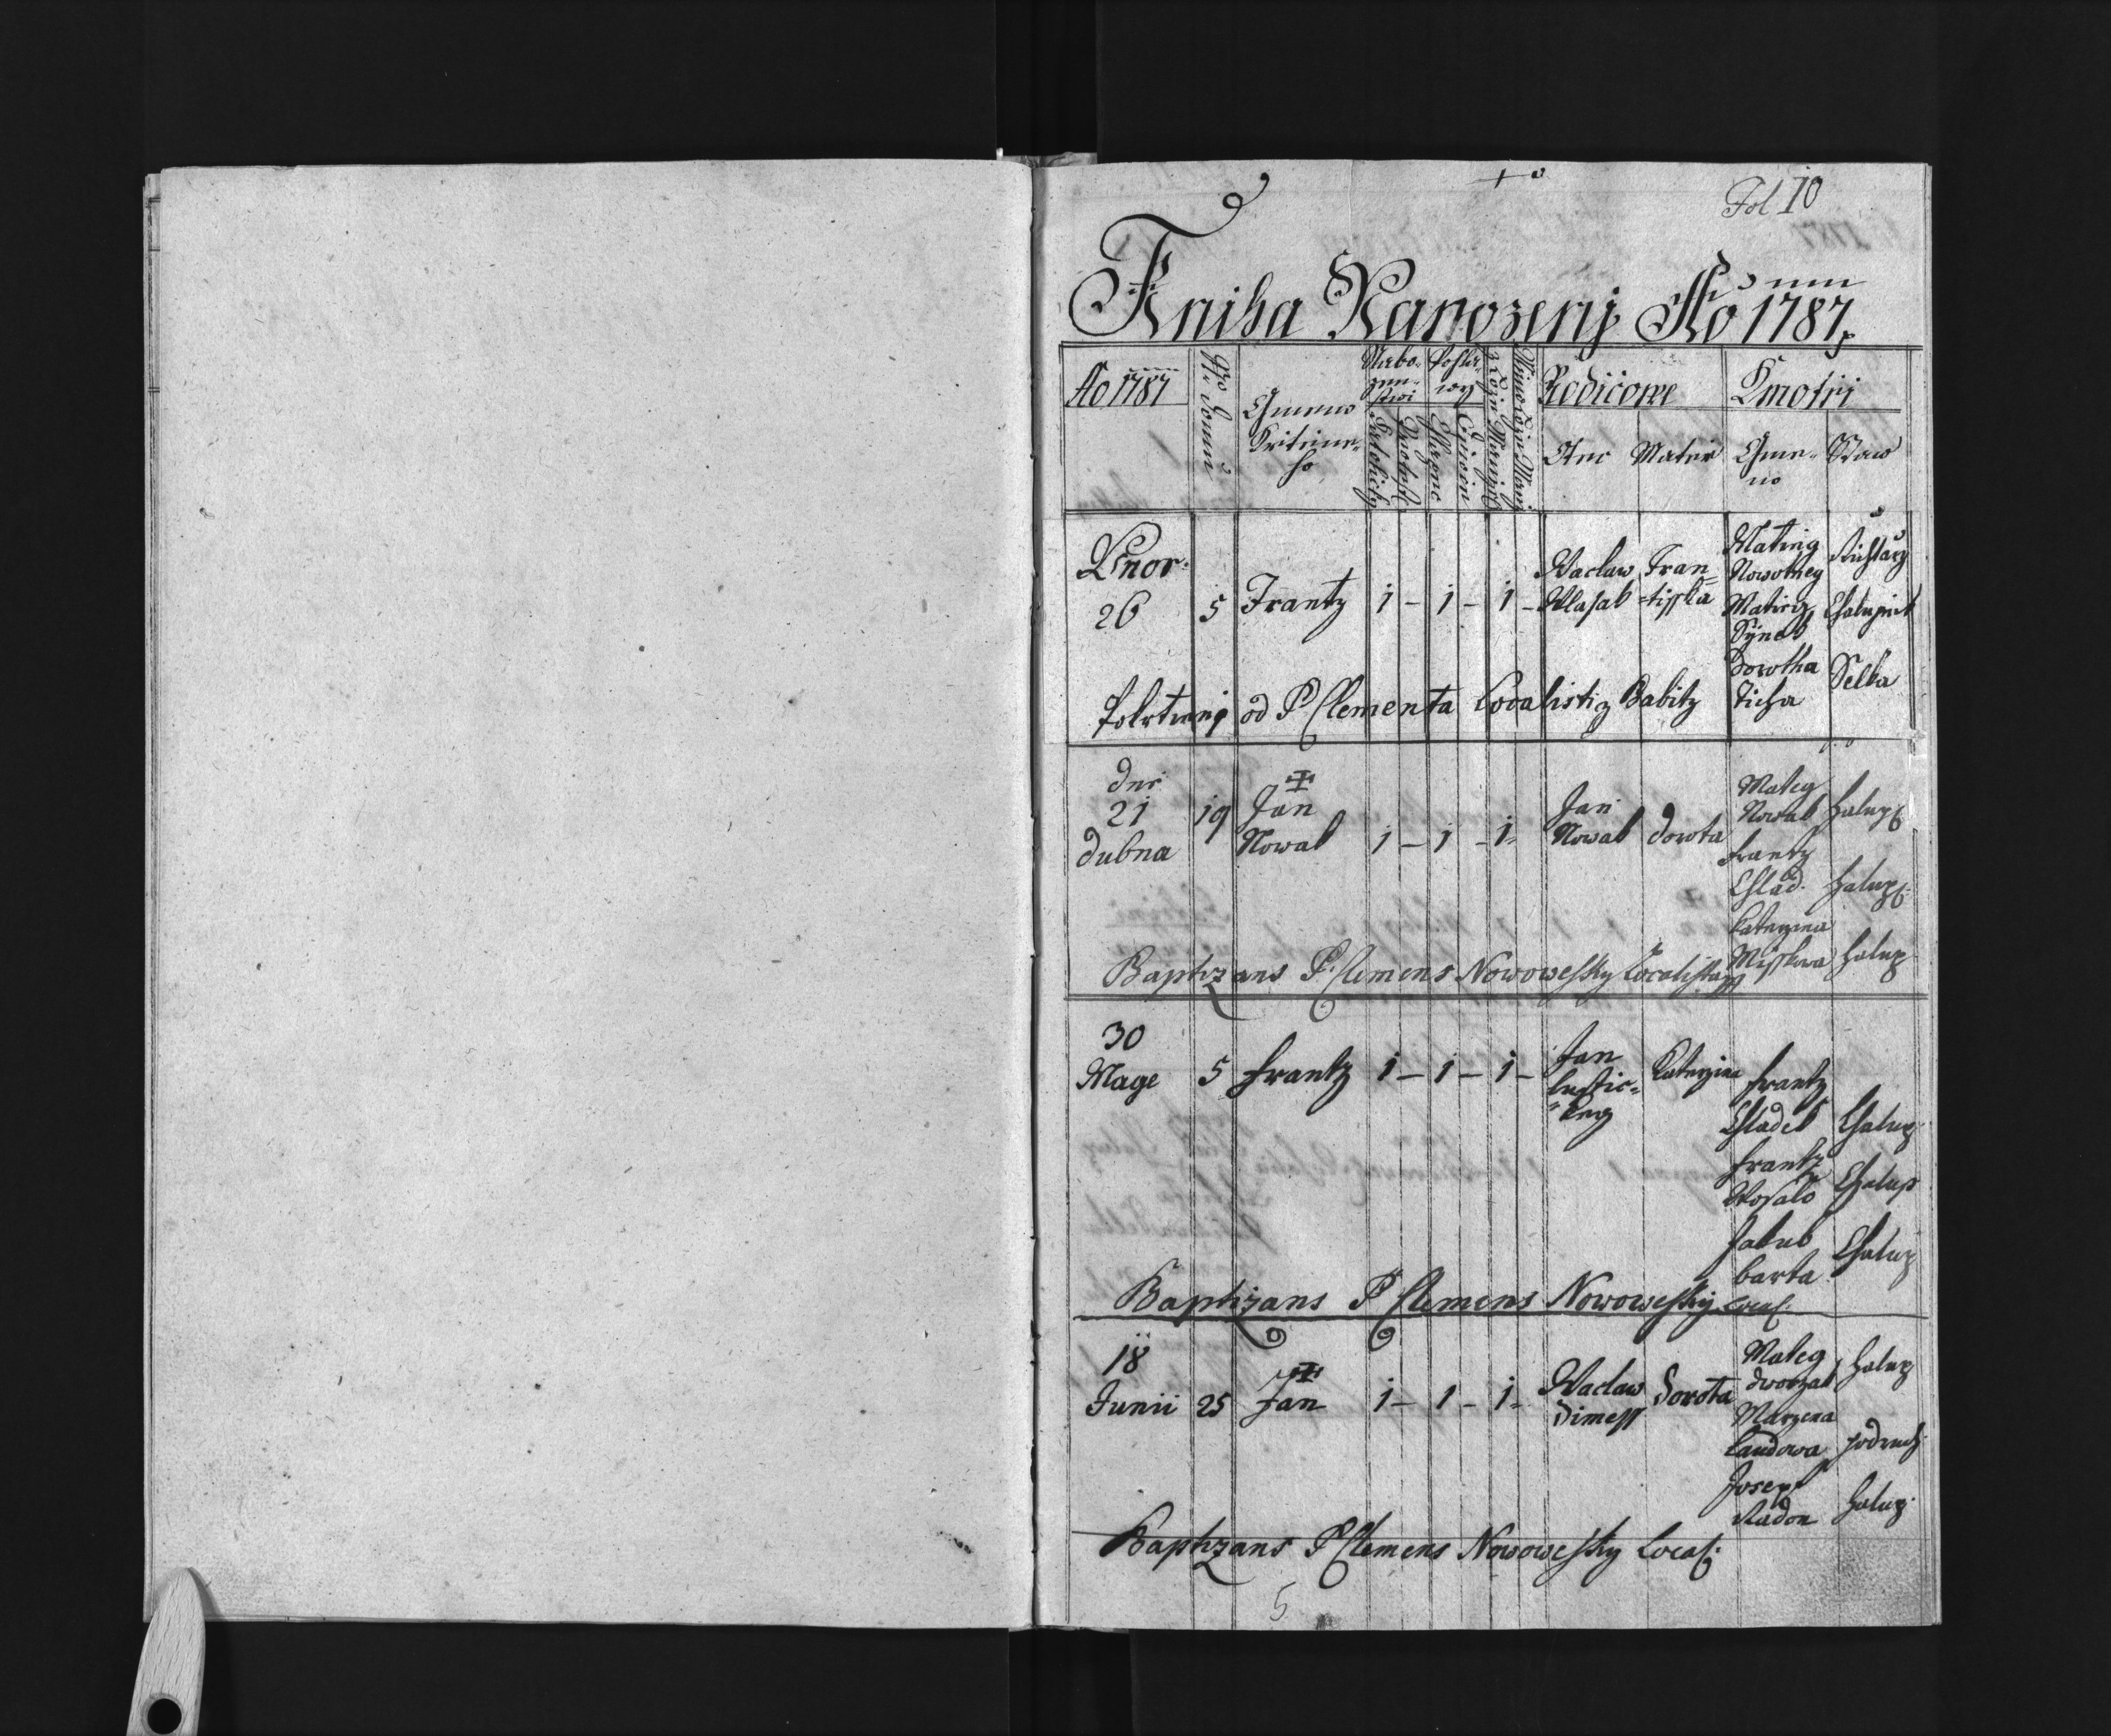 Fol 10
Kniha Narozenj Ao 1787
Ao 1787
Nro Domu
Gmeno
Krztene-
ho
Nabo-
zen-
stwi
Katolicky
Protest
Pohla-
wy
Rodičowe
Kmotři
Otec Mateř Gme- Staw
no
Unor
26 5 Frantz 1 - 1 - 1 -
Waclaw
Wlasak
Fran=
=tisska
Matieg
Nowotney
Matieg
Synek
Dorotha
Ticha
Richtarz
Chalupnik
Selka
Pokrtieny od P Clementa Localisti z Babitz
dne
21
dubna
19 Jan
Nowak 1 - 1 - 1-
Jan
Nowak
dorota
Mateg
Nowak
frantz
Chlad.
Katerzina
Misskowa
halup
halup
halup
Baptizans P. Clemens Nowowessky Localista
30
Mage 5 frantz 1 - 1 - 1 -
Jan
Katerzina
frantz
Chladek
frantz
Jakub
barta
Chalup
Chalup
Chalup
Baptizans P Clemens Nowowessky Local.
18
Junii 25 Jan 1 - 1 - 1-
Waclaw
Dimess
Dorota
Mateg
dworzak
Marzena
Landowa
Josep
Radon
halup
podruh
halup
Baptizans P Clemens Nowowessky Local.
5